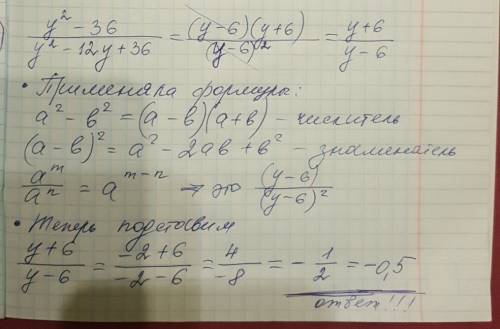 y² - 36 / y² - 12y + 36 = (y-6)(y+6) / (y-6)² = y+6 / y-6
• Применяла формулы:
a² - в² = (a-в)(a+в) - числитель
(a-в)² = a² - 2aв + в² - знаменатель
aᵐ / aⁿ = aᵐ⁻ⁿ → это (y-6) / (y-6)²
• Теперь подставим
y+6 / y-6 = -2+6 / -2-6 = 4 / -8 = - 1 / 2 = -0,5
ответ!!!